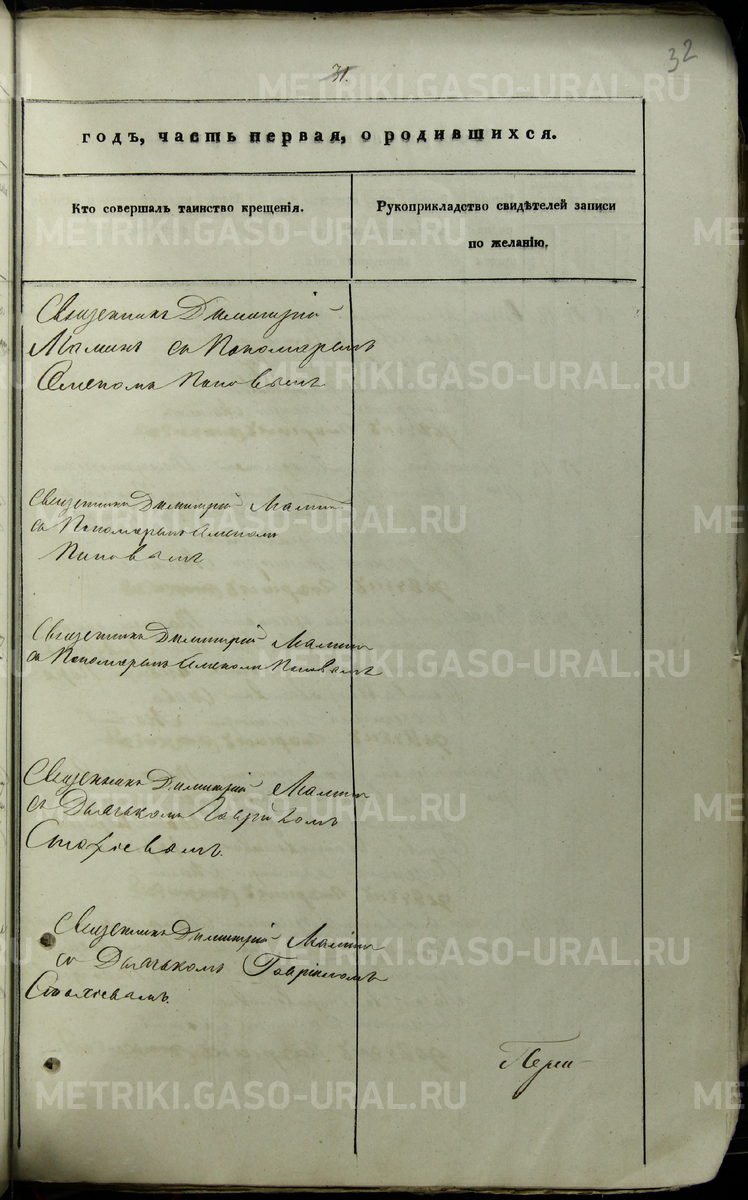 31.
32
годъ, часть первая, о родившихся.
Кто совершалъ таинство крещенія.
Рукоприкладство свидѣтелей записи
по желанію.
Священникъ Димитрій
Маминъ съ Пономаремъ
Семеномъ Поповымъ
Священникъ Димитрій Маминъ
съ Пономаремъ Семеномъ
Поповымъ
Священникъ Димитрій Маминъ
съ Пономаремъ Семеномъ Поповымъ
Священникъ Димитрій Маминъ
съ Дьячкомъ Гавріиломъ
Стахіевымъ.
Священникъ Димитрій Маминъ
съ Дьячкомъ Гавріиломъ
Стахіевымъ.
METRIKI.GASO-URAL.RU